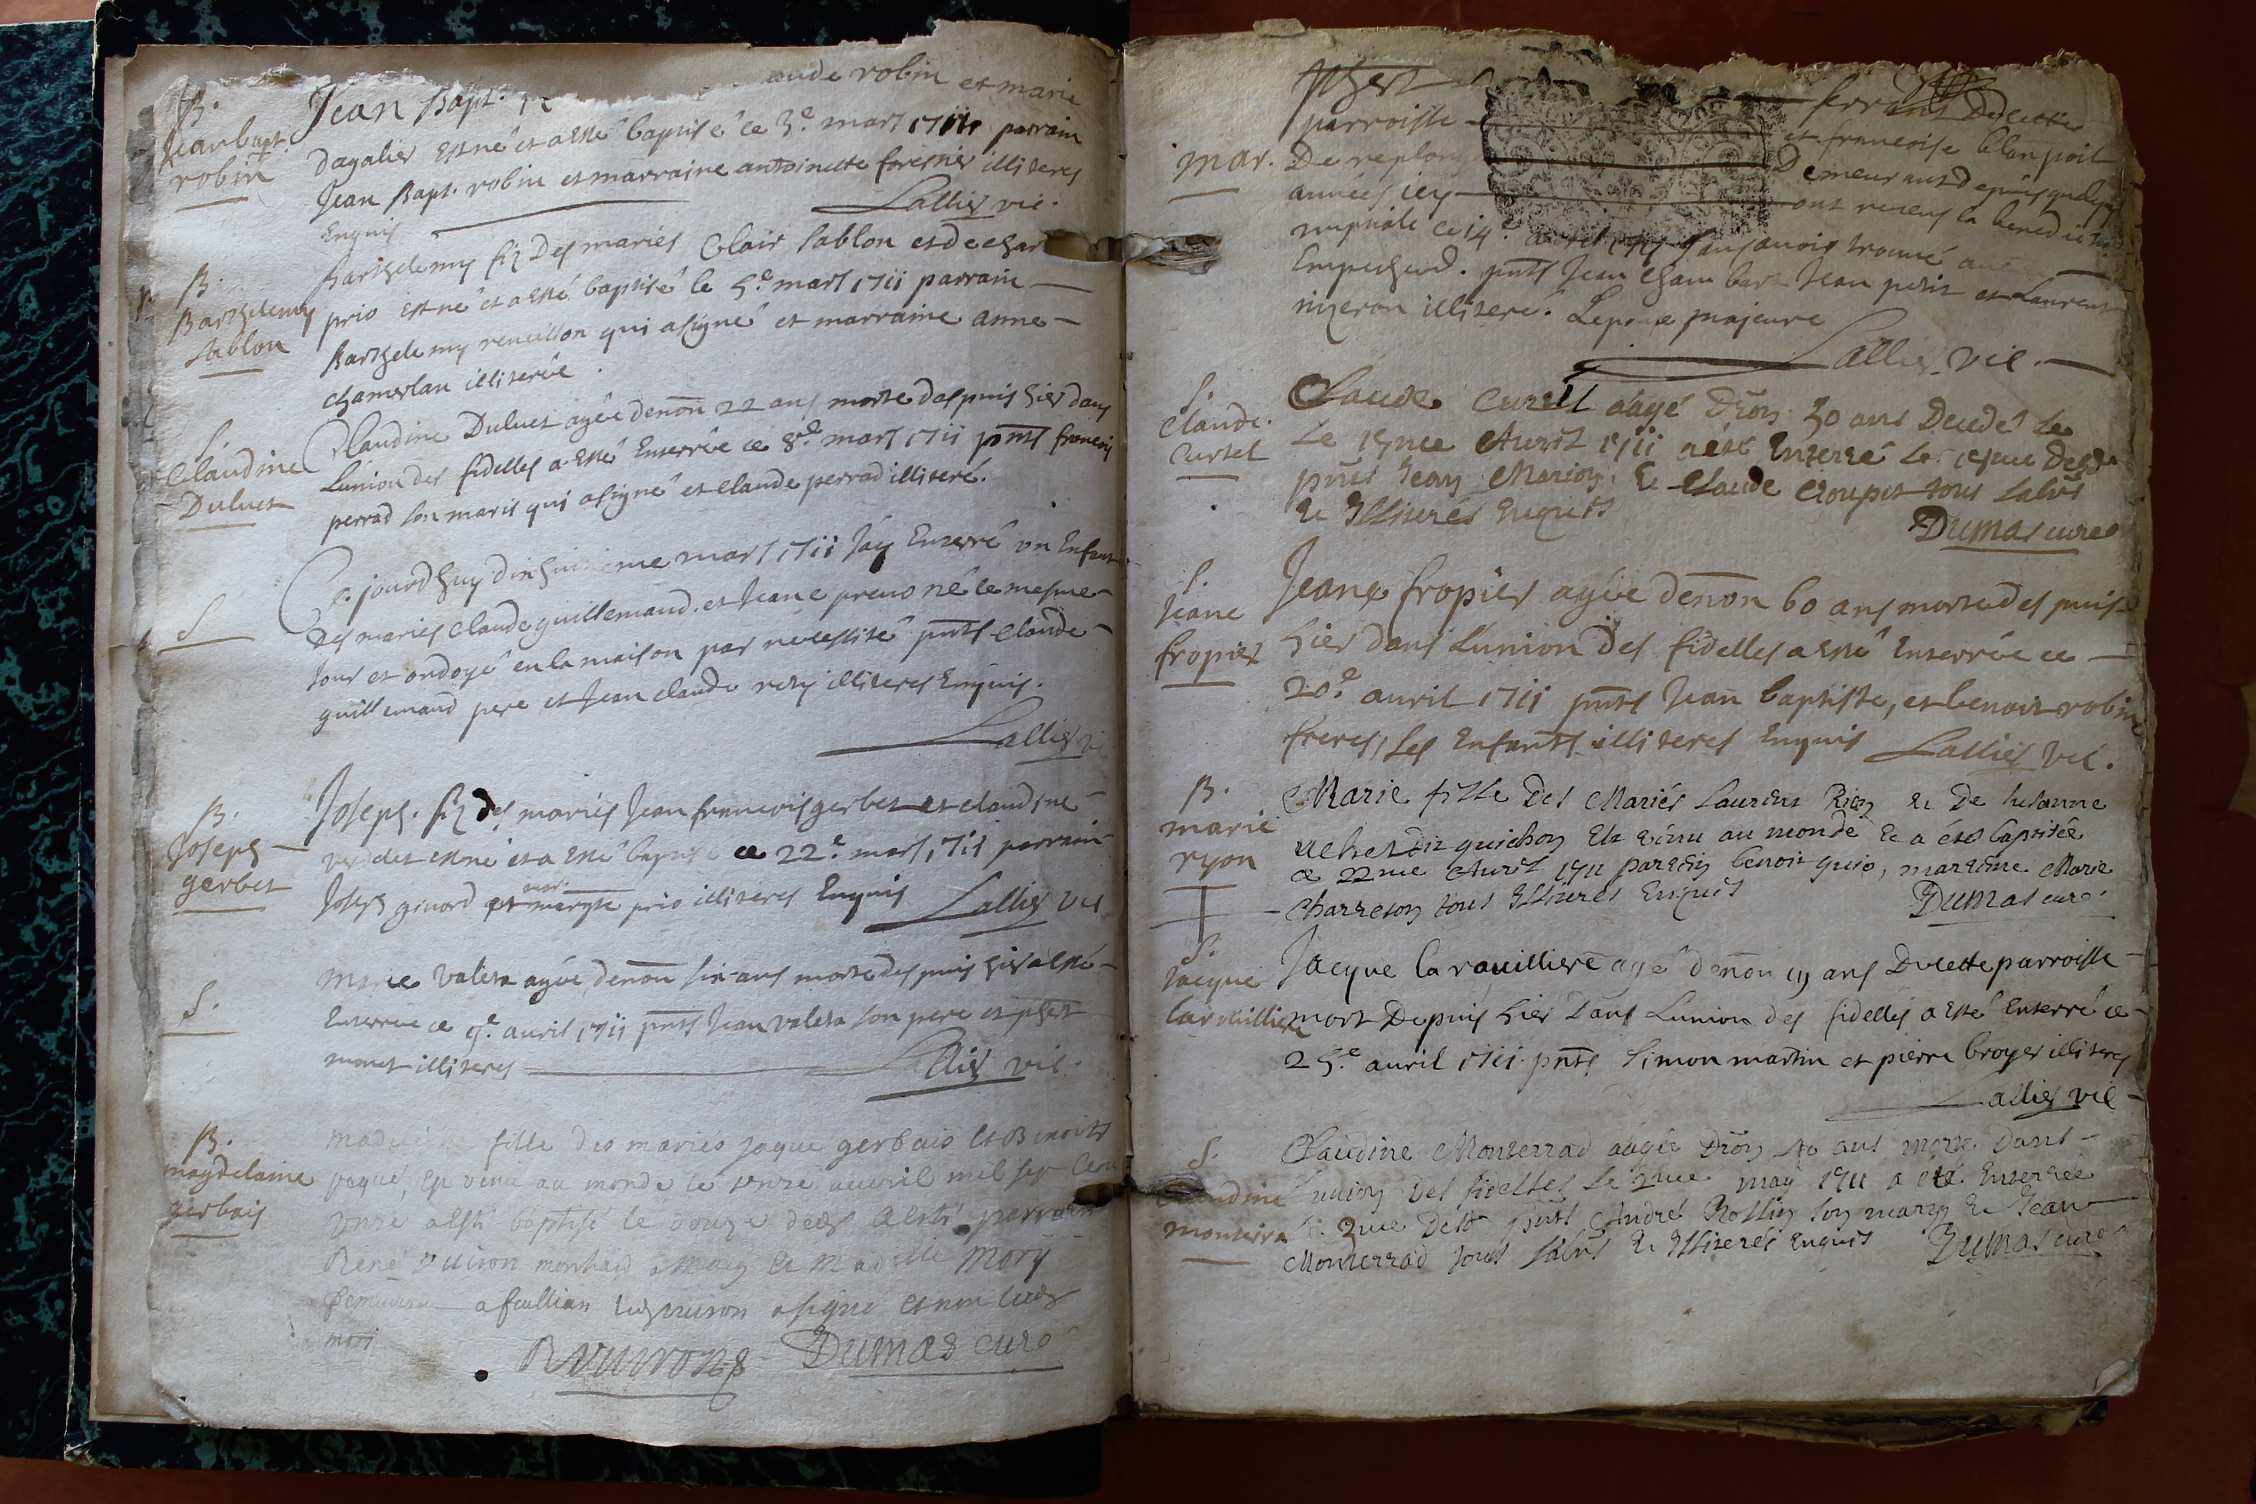 B.
Jean bapt.
robin
Jean Bapt. aude robin et marie
dagalier est né et a esté baptisé ce 3e. mars 1711 parrain
Jean Bapt. robin et marraine antoinette forestier illiteres
Enquis Lallier vic.
B.
Barthelemy
sablon
Barthelemy filz des mariés Clair sablon et de char
prio est né et a esté baptisé le 5e. mars 1711 parrain
Barthelemy reveillon qui a signé et marraine anne
chamerlan illiterée.
S.
Claudine
Duluet
Claudine Duluet agée denōn 22 ans morte despuis hier dans
Lunion des fidelles a esté Enterrée ce 8e. mars 1711 pnts francois
perrad son maris qui a signé et claude perrad illiteré.
S
Ce jourdhuy dix hui me mars 1711 Jay Enterré un Enfant
des mariés claude guillemaud et Jeane preuo né le mesme
Jour et ondoyé en la maison par necessité pnts claude
guillemaud pere et Jean claude rety illiteres Enquis.
Lallier vi
B.
Joseph
gerbet
Joseph filz des mariés Jean francois gerbet et claudine
verdet est né et a esté baptisé ce 22e. mars 1711 parrain
Joseph girard et mar. prio illiteres Enquis Lallier vic
S.
Marie valeta agée denōn six ans morte despuis hier a esté
Enterrée ce 9e. avril 1711 pnts Jean valeta son pere et phert
monet illiteres Lallier vic.
B.
magdelaine
gerbais
fille des mariés Jaque gerbais et Benoite
paqué, est venu au monde le onze auvril mil sept cent
onze a esté baptisé le douze parrain
René vuiron Mory
a signé et non
mori
R Vuiron Dumas curé
mar.
phert ferrand De cette
parroisse et francoise blan poil
De replong Demeurant depuis quelques
années icy ont receus la benediction
nuptiale ce 14e. avril 1711 sans avoir trouvé au
Empeschemt. pnts Jean Chambard Jean petit et Laurent
nizeron illiteré. Lepouse majeure
Lallier vic.
S.
Claude
curtel
Claude Curtil aagé D'on 30 ans Decedé le
Le 15me Avril 1711 a été Enterré le
pnts Jean Marion, & Claude Croupet tous
& Illiterés Enquis
Dumas curé
S.
Jeane
fropier
Jeane fropier agée denōn 60 ans morte despuis
hier dans Lunion des fidelles a esté Enterrée ce
20e. avril 1711 pnts Jean baptiste, et benoit robin
freres, ses Enfants illiteres Enquis Lallier vic.
B.
marie
ryon
Marie fille Des Mariés Laurent Rion & De susanne
dit guichon Est venu au monde & a été baptisée
ce 22me Avril 1711 parrein benoit guio, marreine Marie
Charreton tous Illiterés Enquis Dumas curé
S.
Jacque
laravilliere
Jacque laravilliere agé denōn ans De cette parroisse
mort Depuis hier dans Lunion des fidelles a esté Enterré ce
25e. avril 1711. pnts Simon martin et pierre broyer illiteres
Lallier vic
S.
Claudine
monterra
Claudine Monterrad aagée D'on 40 ans morte dans
lunion des fidelles le 2me may 1711 a été Enterrée
2me pnts André Rollin son marry & Jean
Monterrad tous & Illiterés Enquis Dumas curé